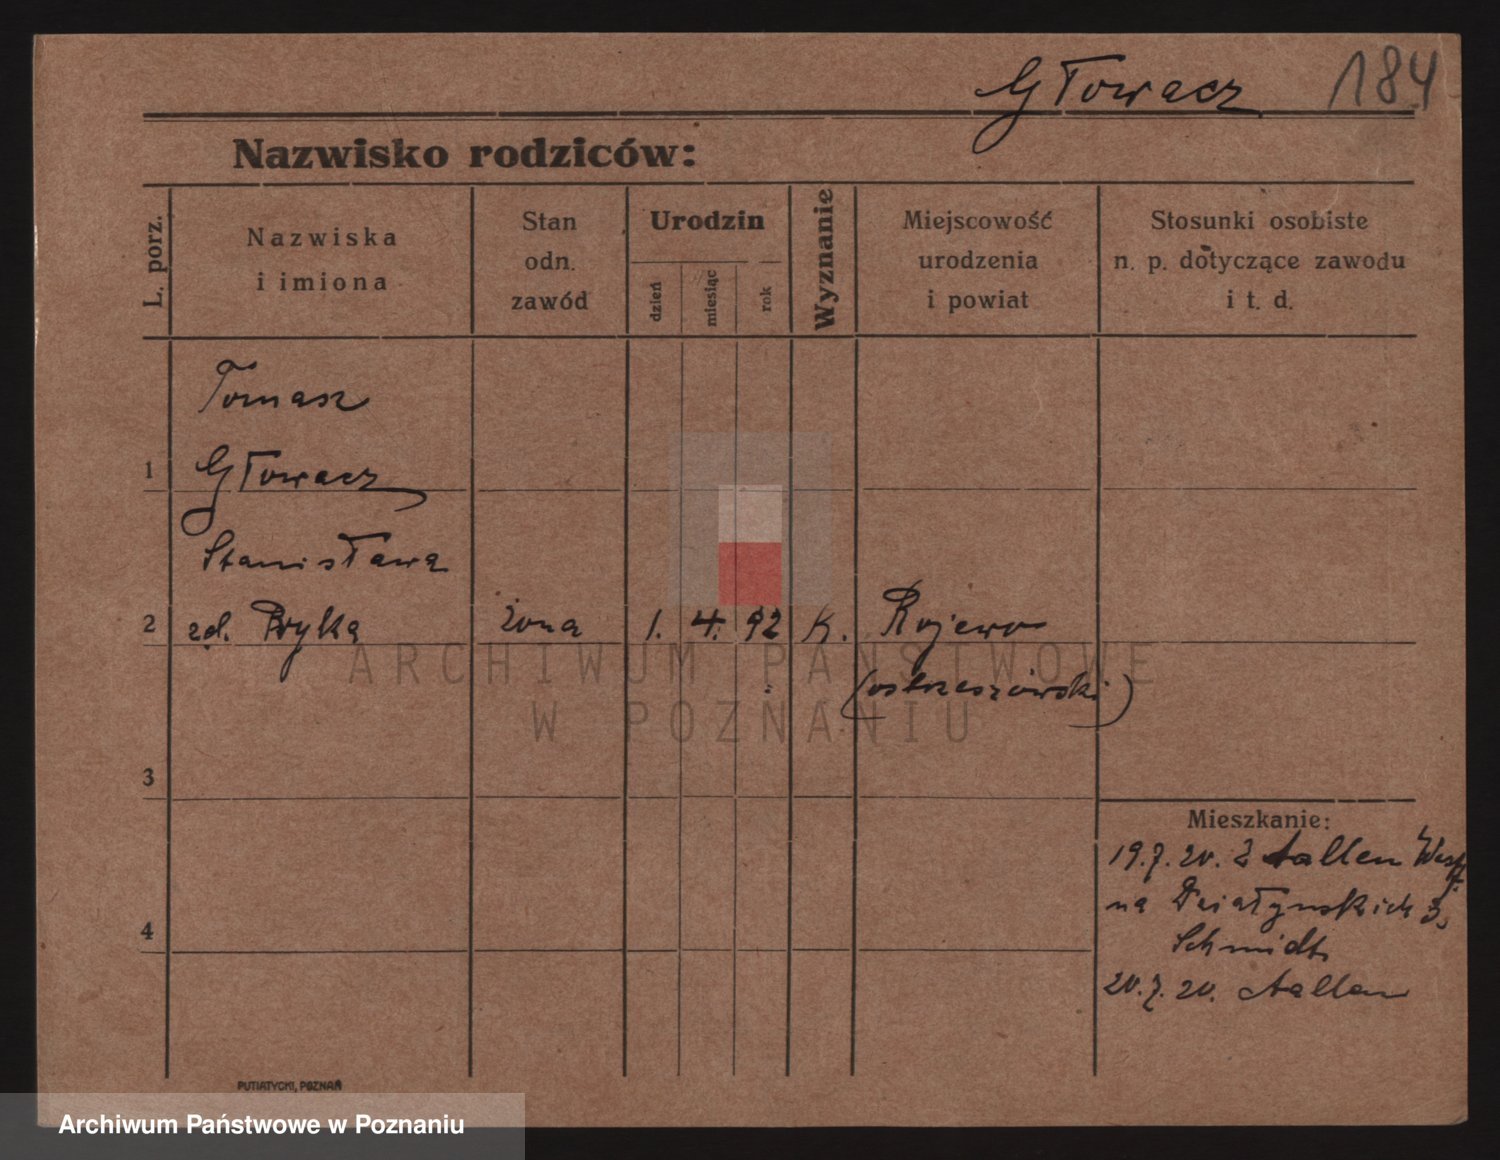 Głowacz 184
Nazwisko rodziców:
L. porz.
Nazwiska
i imiona
Stan
odn.
zawód
Urodzin
dzień
miesiąc
rok
Wyznanie
Miejscowość
urodzenia
i powiat
Stosunki osobiste
n. p. dotyczące zawodu
i t. d.
Tomasz
1 Głowacz
Stanisława
2 zd. Pryka żona 1. 4. 92 K. Rojewo
(ostrzeszówski)
ARCHIWUM PAŃSTWOWE
W POZNANIU
3
Mieszkanie:
19.7.20. z Aallen Westf.
na Działyńskich 3,
4
Schmidt
20.7.20. Aallen
PUTIATYCKI, POZNAŃ
Archiwum Państwowe w Poznaniu